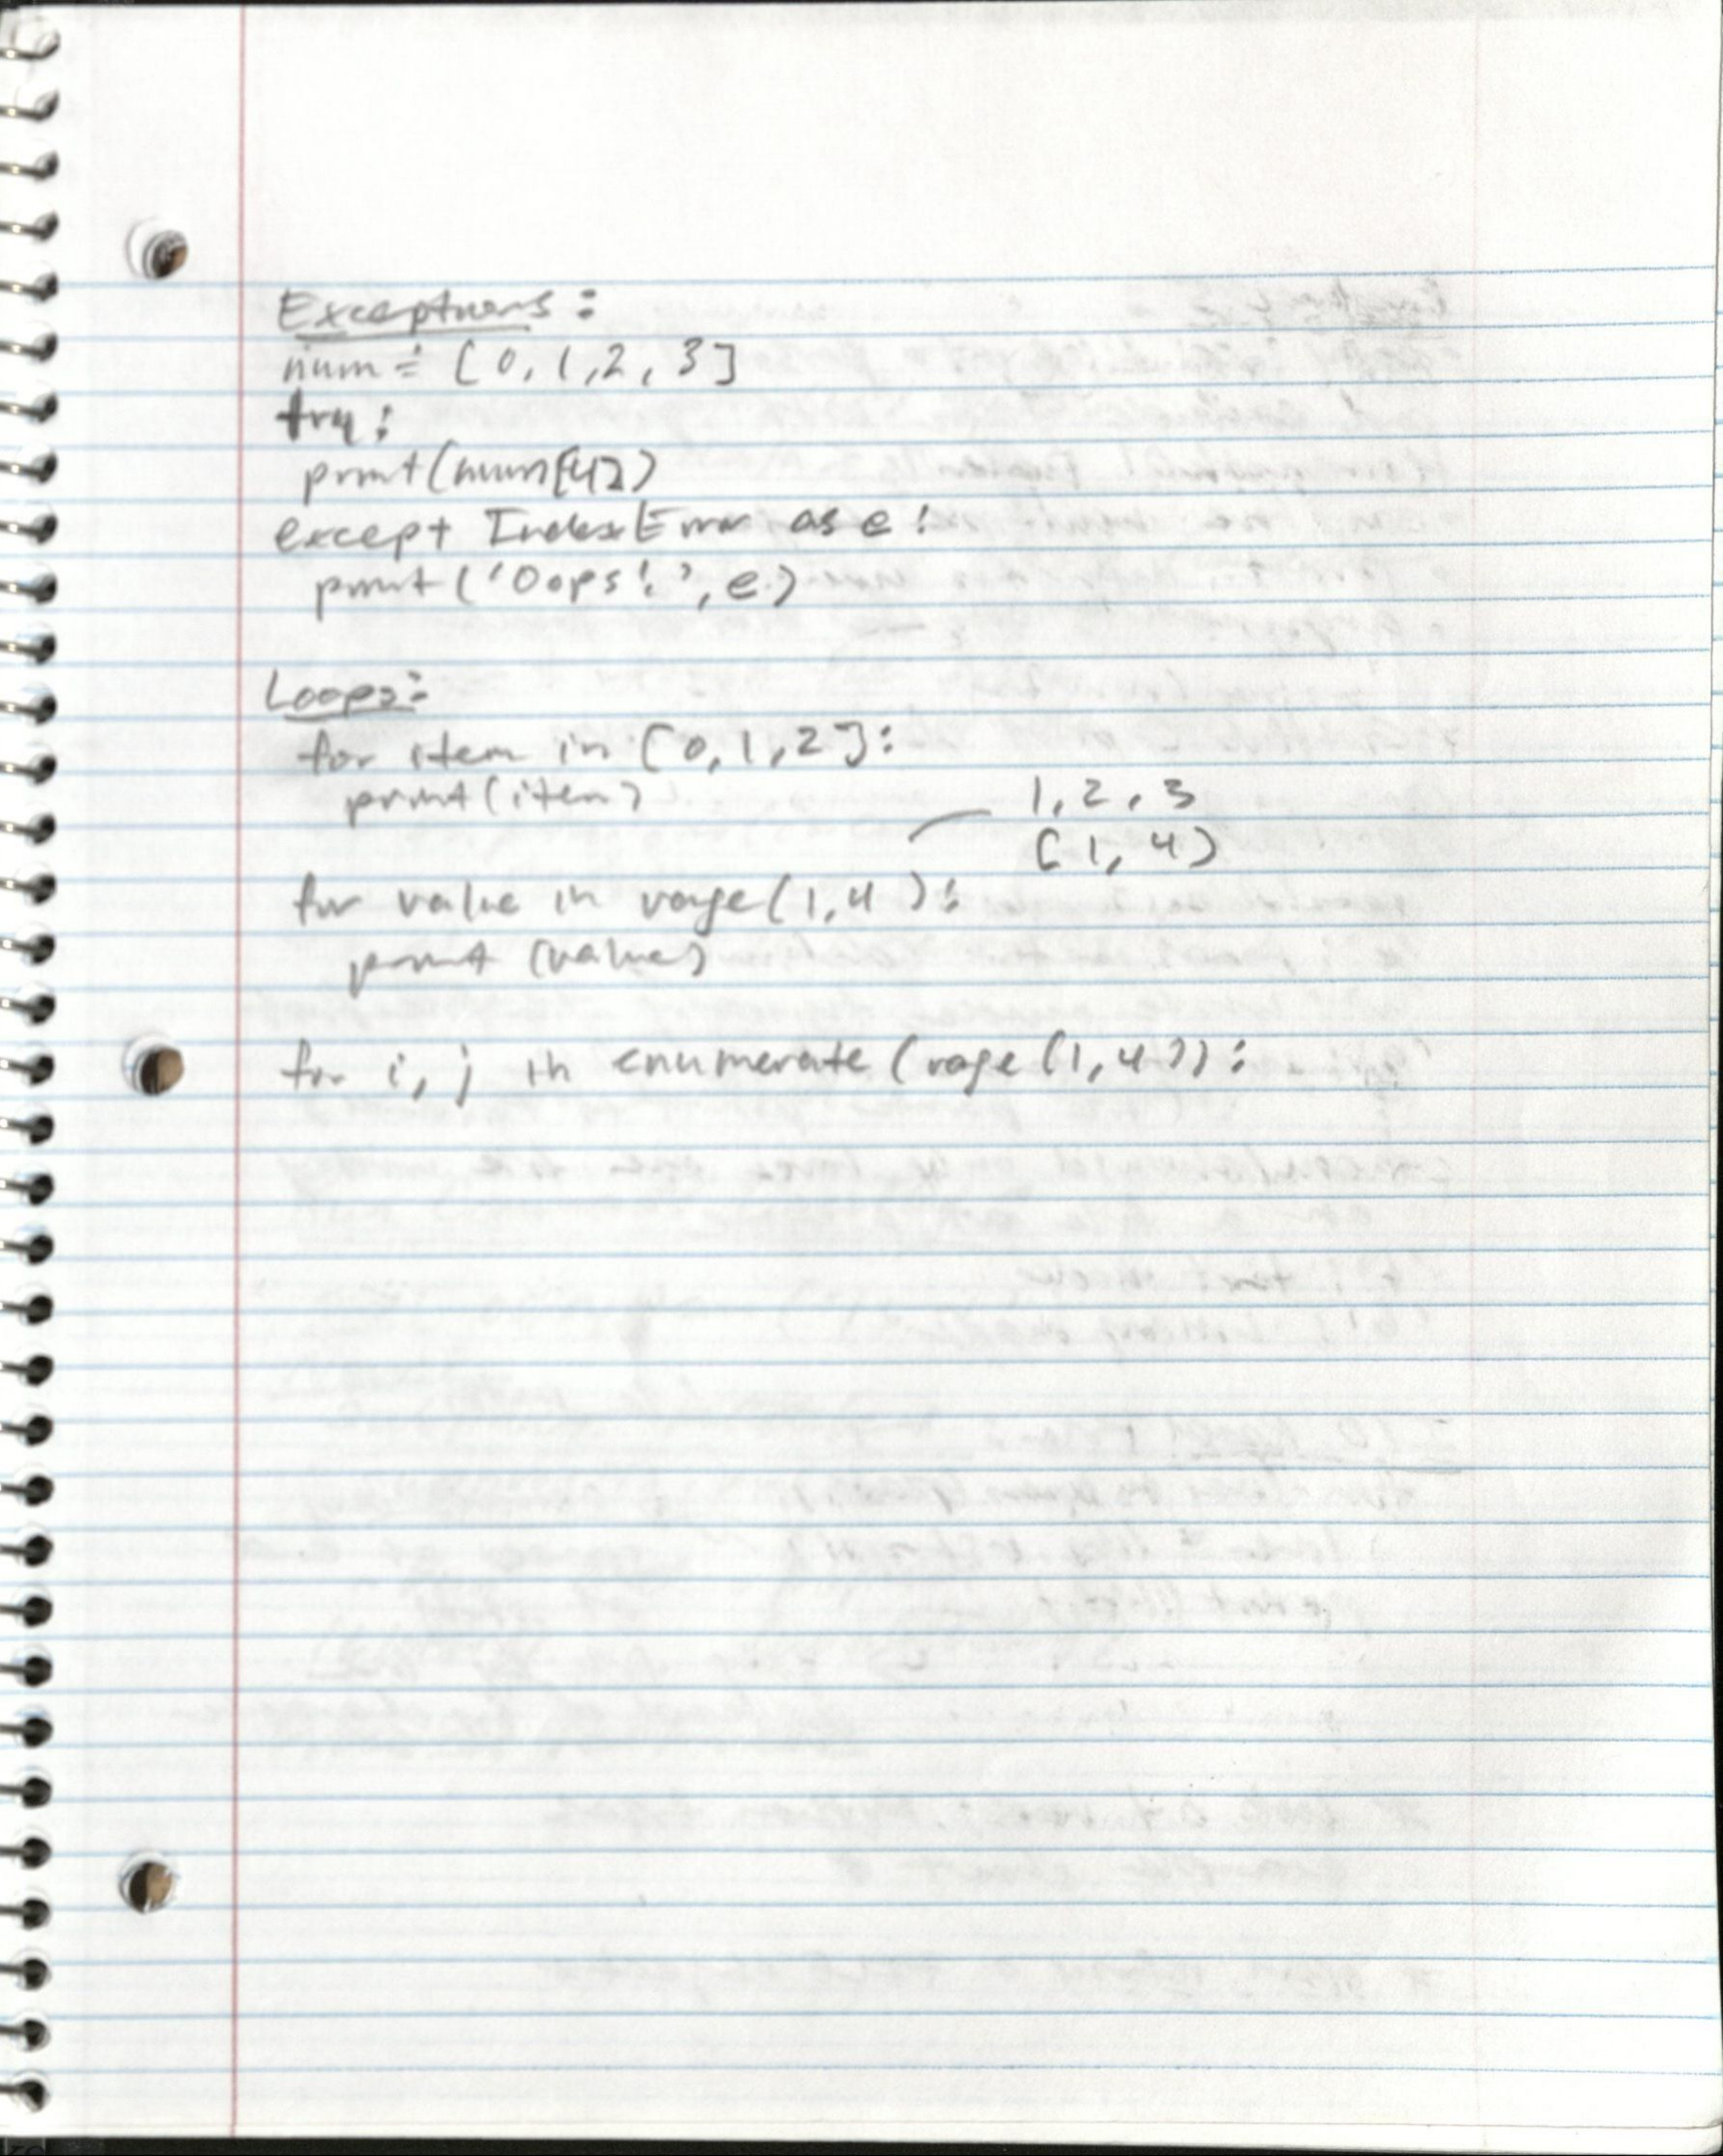 Exceptions:
num = [0, 1, 2, 3]
try:
print(num[4])
except IndexError as e:
print('Oops!', e)
Loops:
for item in [0, 1, 2]:
print(item)
1, 2, 3
[1, 4)
for value in range(1, 4):
print (value)
for i, j in enumerate (range (1, 4)):